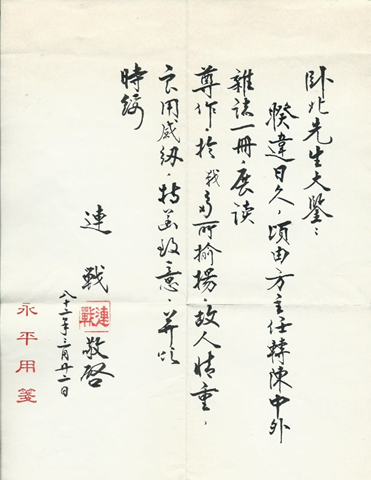 卧北先生大鑒：
睽違日久，頃由方主任轉陳中外
雜誌一冊，展读
尊作，於戰多所揄揚，故人情重，
良用感紉，特函致意，并頌
時綏
連戰敬啓
連戰
八十三年三月廿二日
永平用箋